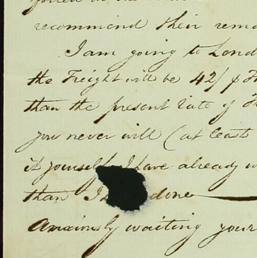 recommend their rema
I am going to Lond
the Freight will be 42/ p
than the present rate of
you never will (at least
it yourself I have already w
than I done
Anxiously waiting your